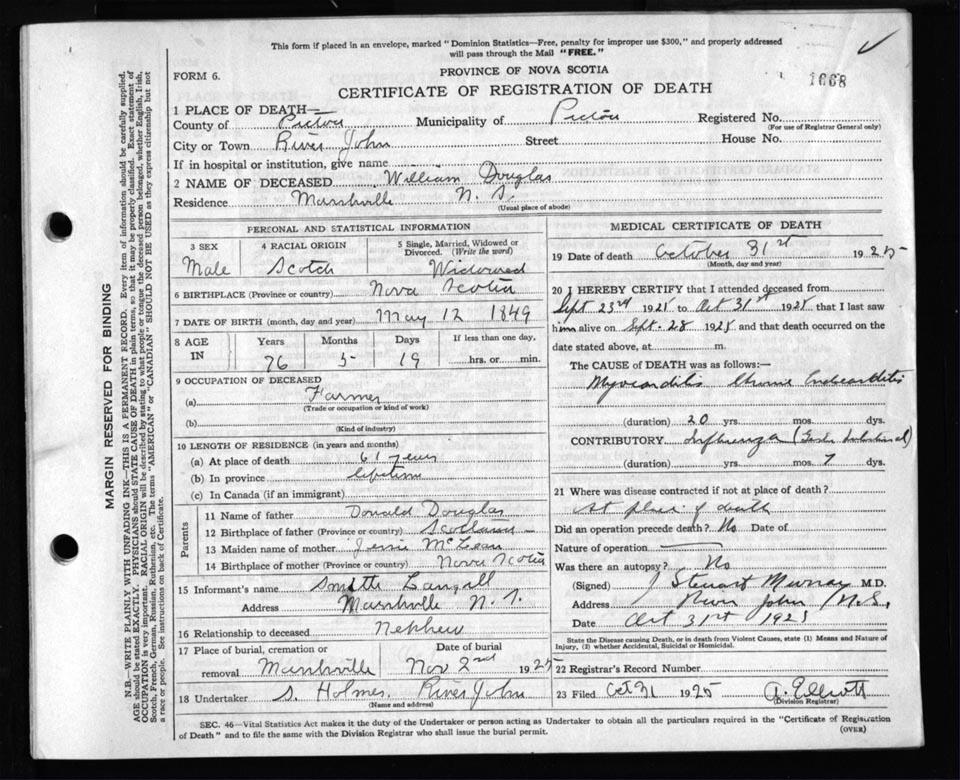 This form if placed in an envelope, marked "Dominion Statistics—Free, penalty for improper use $300," and properly addressed
will pass through the Mail "FREE."
PROVINCE OF NOVA SCOTIA
FORM 6.
CERTIFICATE OF REGISTRATION OF DEATH
1668
1 PLACE OF DEATH—
County of Pictou Municipality of Pictou Registered No.
(For use of Registrar General only)
City or Town River John Street House No.
If in hospital or institution, give name
2 NAME OF DECEASED William Douglas
Residence Marshville N. S.
(Usual place of abode)
MARGIN RESERVED FOR BINDING
N.B.—WRITE PLAINLY WITH UNFADING INK—THIS IS A PERMANENT RECORD. Every item of information should be carefully supplied.
AGE should be stated EXACTLY. PHYSICIANS should STATE CAUSE OF DEATH in plain terms, so that it may be properly classified. Exact statement of
OCCUPATION is very important. RACIAL ORIGIN will be described by stating to what people or tongue the deceased person belonged, whether English, Irish,
Scotch, French, German, Russian, Ruthenian, etc. The terms "AMERICAN" or "CANADIAN" SHOULD NOT BE USED as they express citizenship but not
a race or people. See instructions on back of Certificate.
PERSONAL AND STATISTICAL INFORMATION
3 SEX 4 RACIAL ORIGIN 5 Single, Married, Widowed or
Divorced. (Write the word)
Male Scotch Widowed
6 BIRTHPLACE (Province or country) Nova Scotia
7 DATE OF BIRTH (month, day and year) May 12 1849
8 AGE IN Years Months Days If less than one day,
76 5 19 hrs. or min.
9 OCCUPATION OF DECEASED
(a) Farmer
(Trade or occupation or kind of work)
(b)
(Kind of industry)
10 LENGTH OF RESIDENCE (in years and months)
(a) At place of death 61 years
(b) In province lifetime
(c) In Canada (if an immigrant)
Parents
11 Name of father Donald Douglas
12 Birthplace of father (Province or country) Scotland
13 Maiden name of mother Jessie McLean
14 Birthplace of mother (Province or country) Nova Scotia
15 Informant's name Smith Langill
Address Marshville N. S.
16 Relationship to deceased Nephew
17 Place of burial, cremation or Date of burial
removal Marshville Nov 2nd 1925
18 Undertaker S. Holmes, River John
(Name and address)
MEDICAL CERTIFICATE OF DEATH
19 Date of death October 31st 1925
(Month, day and year)
20 I HEREBY CERTIFY that I attended deceased from
Sept 23rd 1925 to Oct 31st 1925 that I last saw
him alive on Sept. 28 1925 and that death occurred on the
date stated above, at m.
The CAUSE OF DEATH was as follows:
Myocarditis Chronic Endocarditis
(duration) 20 yrs. mos. dys.
CONTRIBUTORY Influenza (Gastro Intestinal)
(duration) yrs. mos 7 dys.
21 Where was disease contracted if not at place of death?
At place of death
Did an operation precede death? No Date of
Nature of operation
Was there an autopsy? No
(Signed) J Steuart Murray M.D.
Address River John N.S.
Date Oct 31st 1925
State the Disease causing Death, or in death from Violent Causes, state (1) Means and Nature of
Injury, (2) whether Accidental, Suicidal or Homicidal.
22 Registrar's Record Number
23 Filed Oct 31 1925 A. Elliott
(Division Registrar)
SEC. 46—Vital Statistics Act makes it the duty of the Undertaker or person acting as Undertaker to obtain all the particulars required in the "Certificate of Registration
of Death" and to file the same with the Division Registrar who shall issue the burial permit.
(OVER)